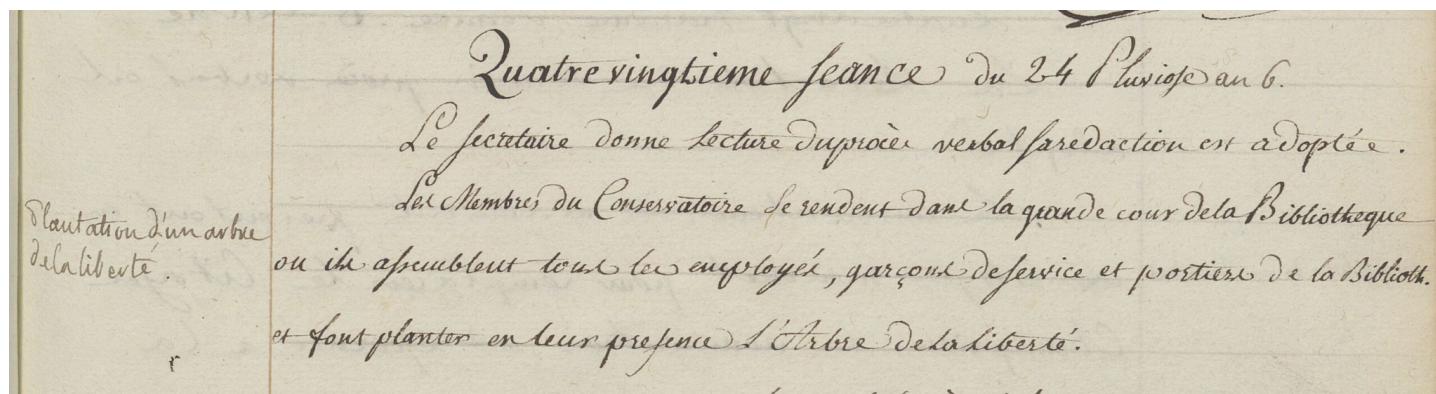 Quatrevingtieme seance du 24 Pluviose an 6.
Le secretaire donne lecture du procès verbal sa redaction est adoptée.
Les Membres du Conservatoire se rendent dans la grande cour de la Bibliotheque
Plantation d'un arbre
de la liberté.
ou ils assemblent tous les employés, garçons de service et portiers de la Biblioth.
et font planter en leur presence l'Arbre de la liberté.